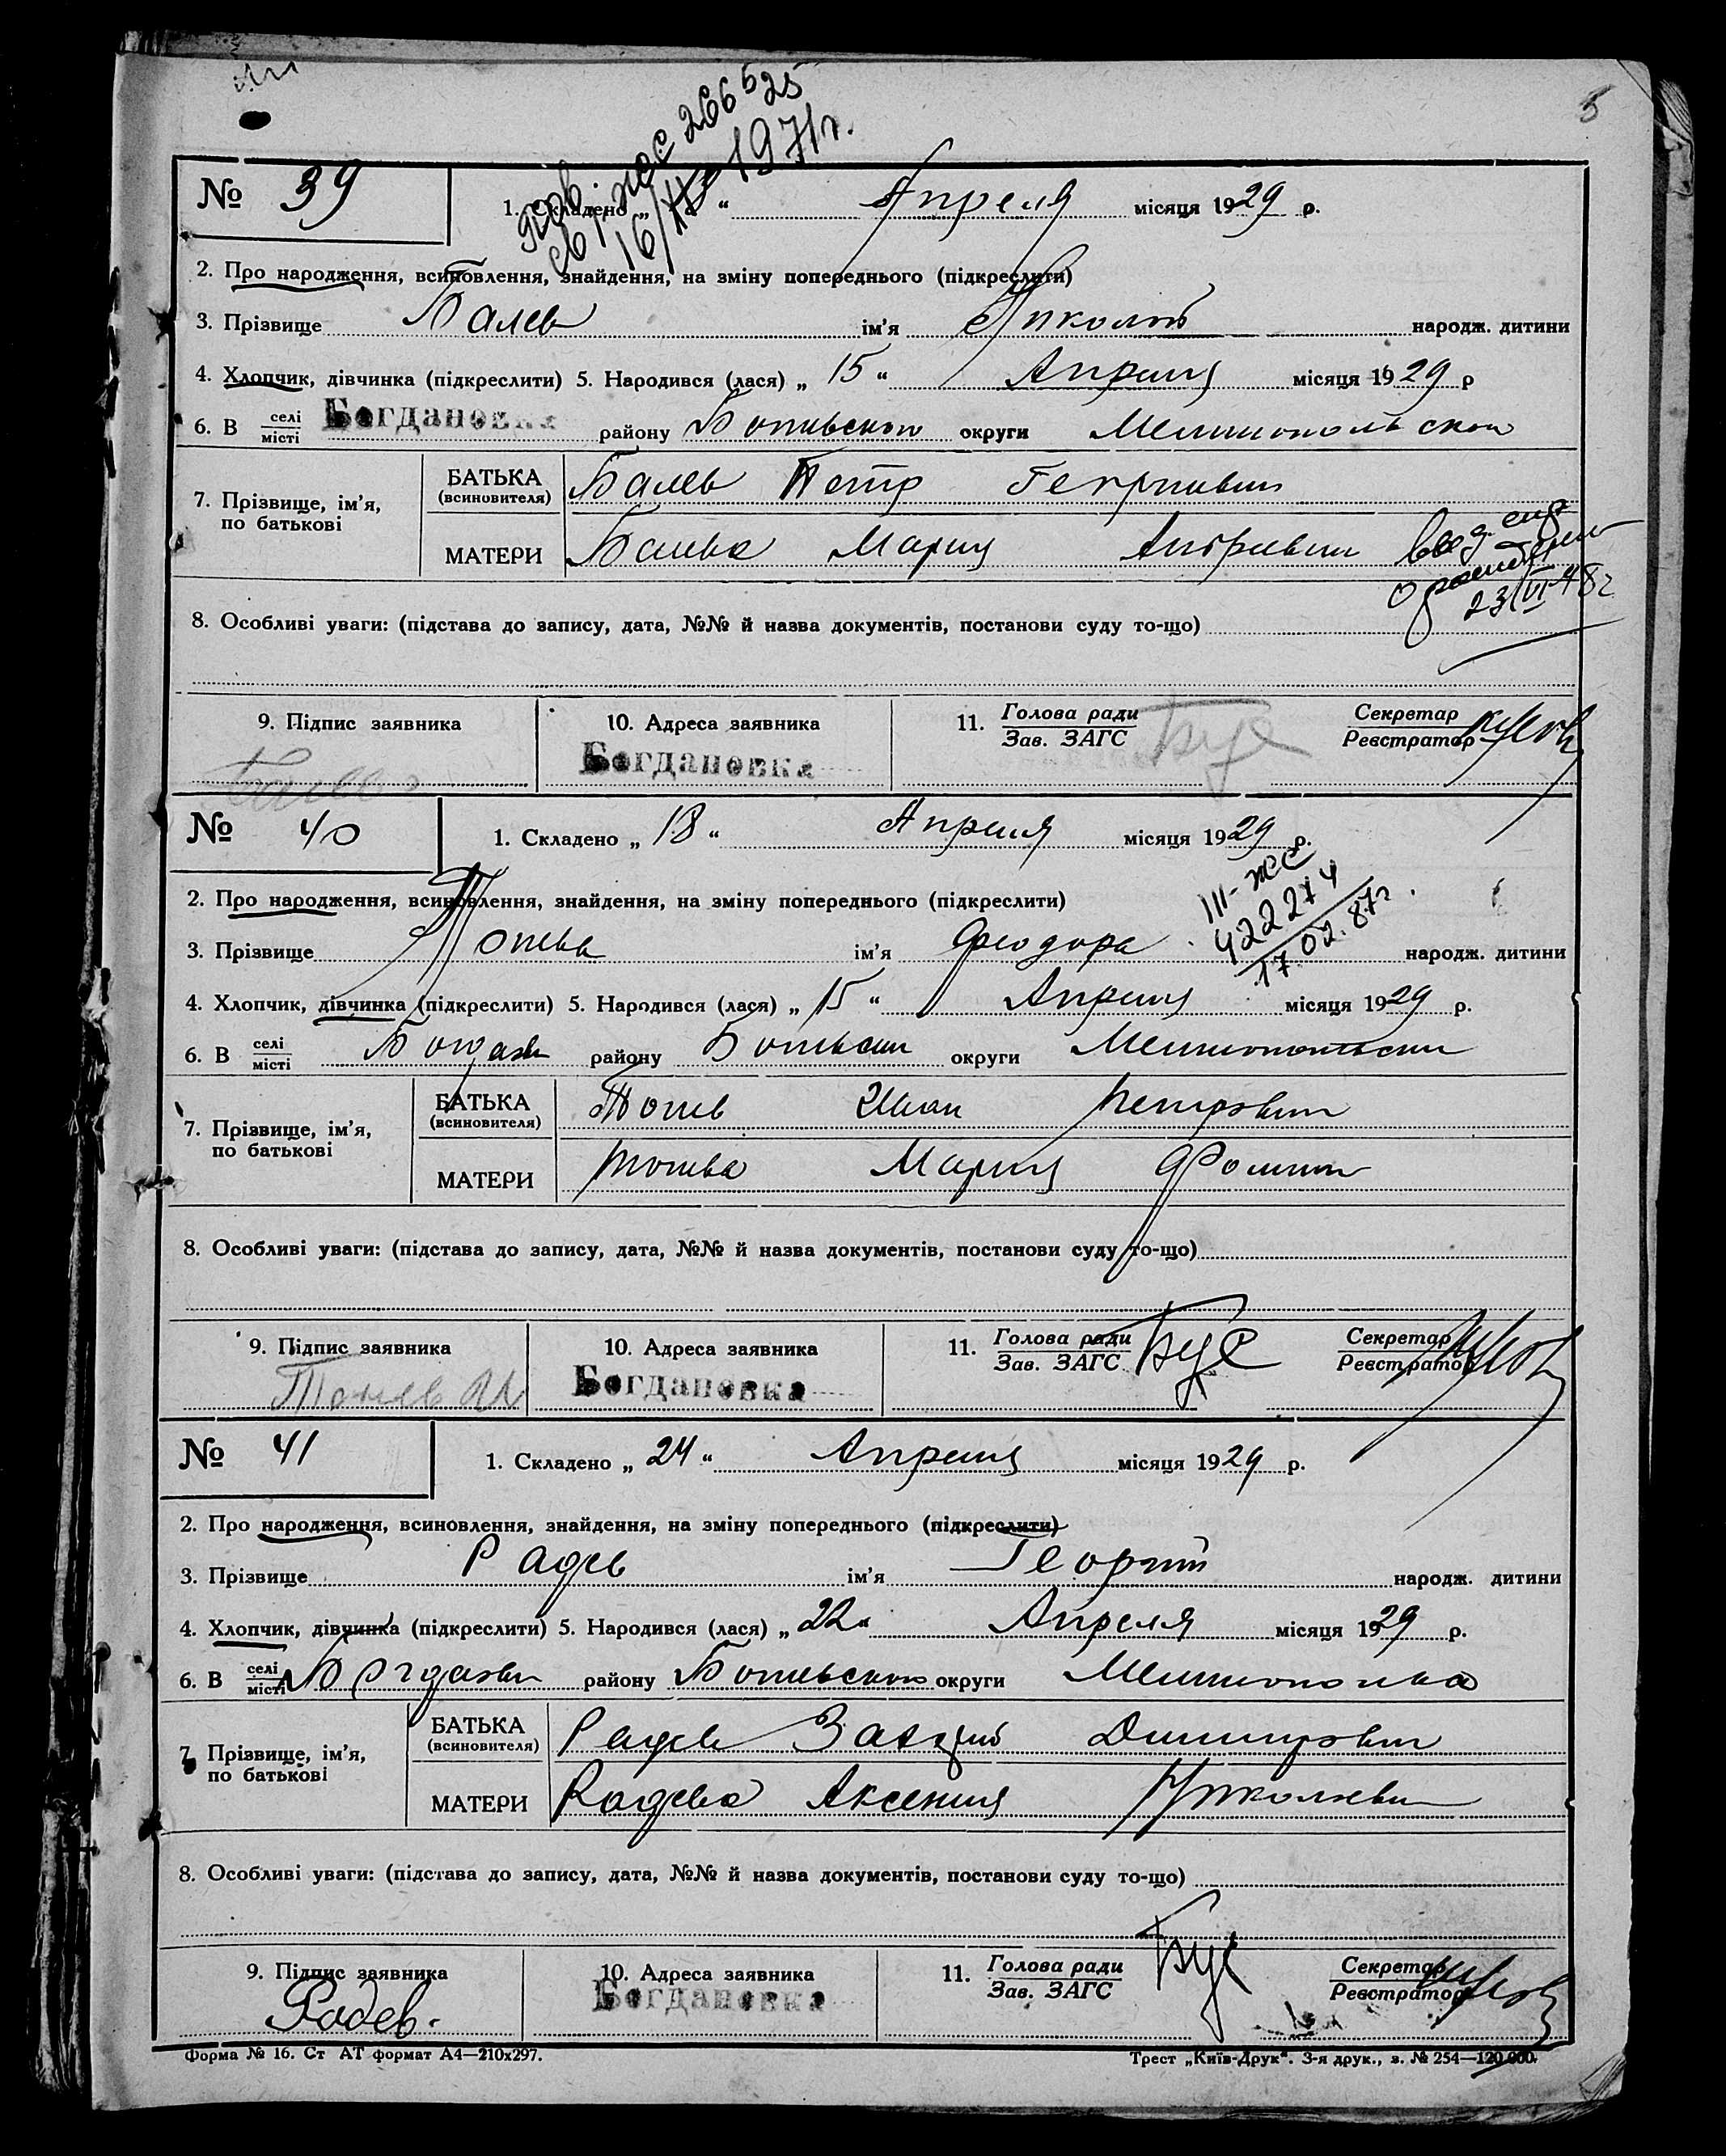 5
пов. св. ЖС 266525
16/XII 1971г.
№ 39
1. Складено „ “ Апреля місяця 1929 р.
2. Про народження, всиновлення, знайдення, на зміну попереднього (підкреслити)
3. Прізвище Балев ім'я Николай народж. дитини
4. Хлопчик, дівчинка (підкреслити) 5. Народився (лася) „ 15 “ Апреля місяця 1929 р
6. В селі/місті Богдановка району Ботиевского округи Мелитопольской
7. Прізвище, ім'я, по батькові
БАТЬКА (всиновителя) Балев Петр Георгиевич
МАТЕРИ Балева Мария Андреевна
23/VI-48г
8. Особливі уваги: (підстава до запису, дата, №№ й назва документів, постанови суду то-що)
9. Підпис заявника 10. Адреса заявника 11. Голова ради/Зав. ЗАГС Бус Секретар/Реєстратор
Балев Богдановка
№ 40
1. Складено „ 18 “ Апреля місяця 1929 р.
III-ЖС
422274
17.02.87г.
2. Про народження, всиновлення, знайдення, на зміну попереднього (підкреслити)
3. Прізвище Тонева ім'я Феодора народж. дитини
4. Хлопчик, дівчинка (підкреслити) 5. Народився (лася) „ 15 “ Апреля місяця 1929 р.
6. В селі/місті Богданов району Ботиевский округи Мелитопольский
7. Прізвище, ім'я, по батькові
БАТЬКА (всиновителя) Тонев Иван Петрович
МАТЕРИ Тонева Мария Фомин
8. Особливі уваги: (підстава до запису, дата, №№ й назва документів, постанови суду то-що)
9. Підпис заявника 10. Адреса заявника 11. Голова ради/Зав. ЗАГС Бус Секретар/Реєстратор
Тонев И Богдановка
№ 41
1. Складено „ 24 “ Апреля місяця 1929 р.
2. Про народження, всиновлення, знайдення, на зміну попереднього (підкреслити)
3. Прізвище Радев ім'я Георгий народж. дитини
4. Хлопчик, дівчинка (підкреслити) 5. Народився (лася) „ 22 “ Апреля місяця 1929 р.
6. В селі/місті Богданов району Ботиевского округи Мелитополька
7. Прізвище, ім'я, по батькові
БАТЬКА (всиновителя) Радев Захрий Димитрович
МАТЕРИ Радева Аксения Николаевн
8. Особливі уваги: (підстава до запису, дата, №№ й назва документів, постанови суду то-що)
9. Підпис заявника 10. Адреса заявника 11. Голова ради/Зав. ЗАГС Бус Секретар/Реєстратор
Радев. Богдановка
Форма № 16. Ст АТ формат А4—210х297. Трест „Київ-Друк“. 3-я друк., з. № 254—120.000.